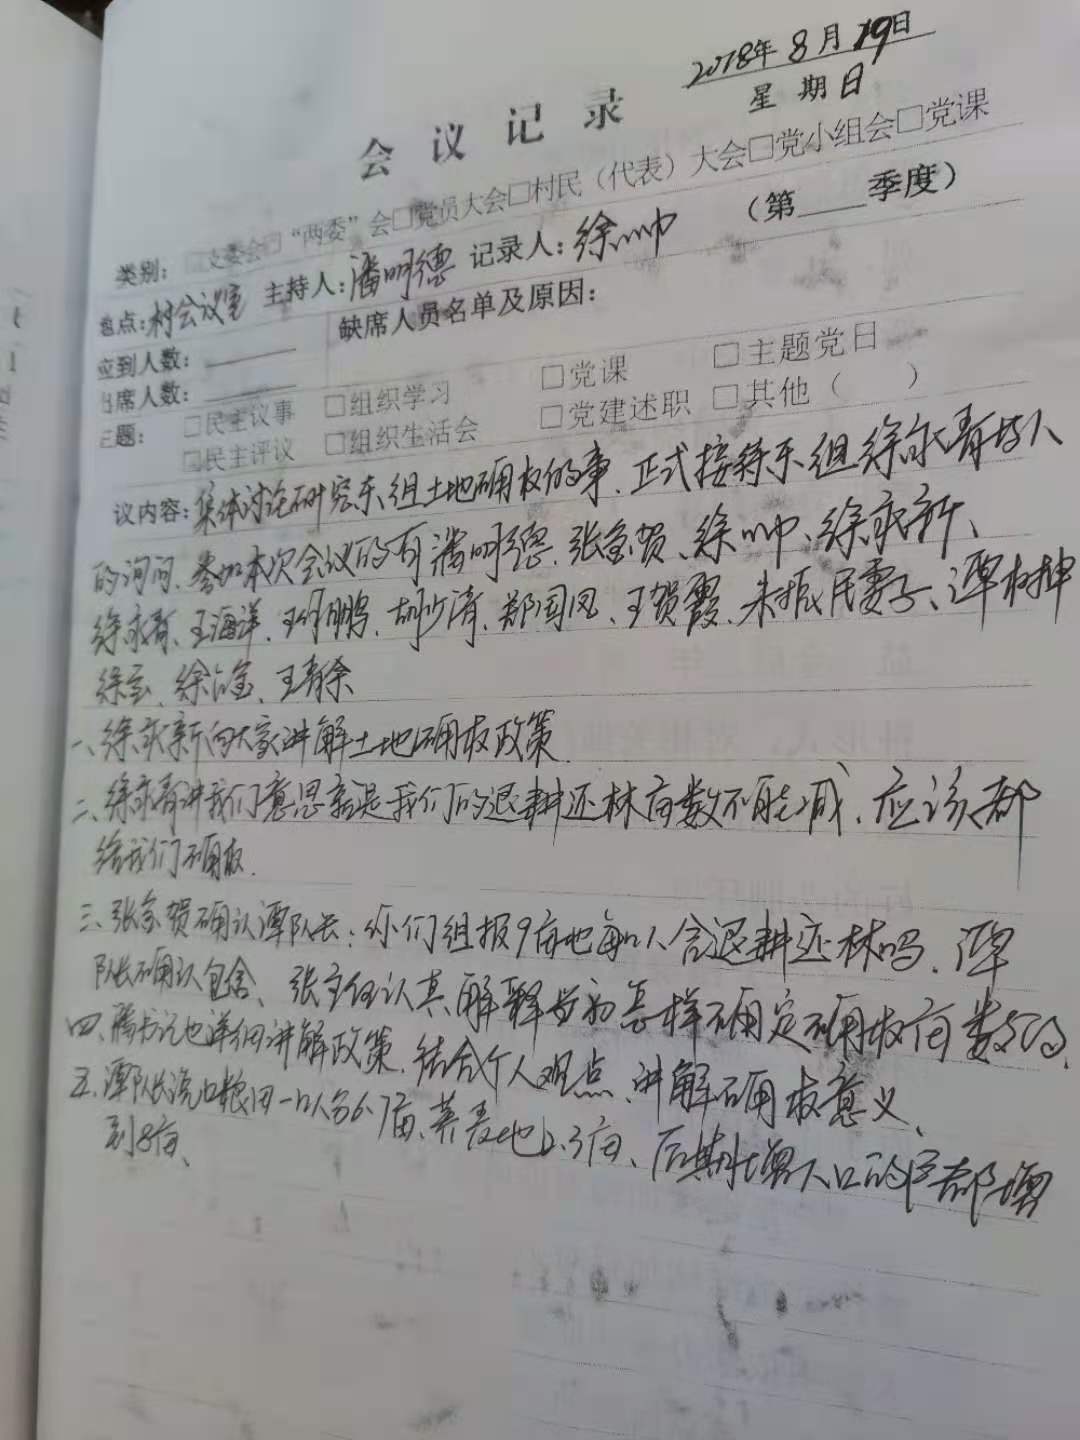 2018年8月19日
星期日
会议记录
类别：□支委会□“两委”会□党员大会□村民（代表）大会□党小组会□党课
点：村会议室 主持人：潘明德 记录人：徐帅 （第 季度）
应到人数： 缺席人员名单及原因：
出席人数：
主题： □民主议事 □组织学习 □党课 □主题党日
□民主评议 □组织生活会 □党建述职 □其他（ ）
议内容：集体讨论研究东组土地确权的事、正式接待东组徐永青等人
的询问、参加本次会议的有潘明德、张金贺、徐帅、徐永新、
徐永青、王海洋、鹏、胡少清、郑国凤、王贺霞、朱振民妻子、谭树坤
徐云、徐宝、王青余
一、徐永新向大家讲解土地确权政策
二、徐永青讲我们意思就是我们的退耕还林亩数不能减、应该都
给我们确权.
三、张金贺确认谭队长：你们组报9亩地每口人含退耕还林吗、谭
队长确认包含、张主任认真解释当初怎样确定确权亩数的、
四、潘书记也详细讲解政策、结合个人观点、讲解确权意义、
五、谭队长说口粮田一口人分6.7亩、荞麦地2.3亩、后期增人口的户都增
到8亩、